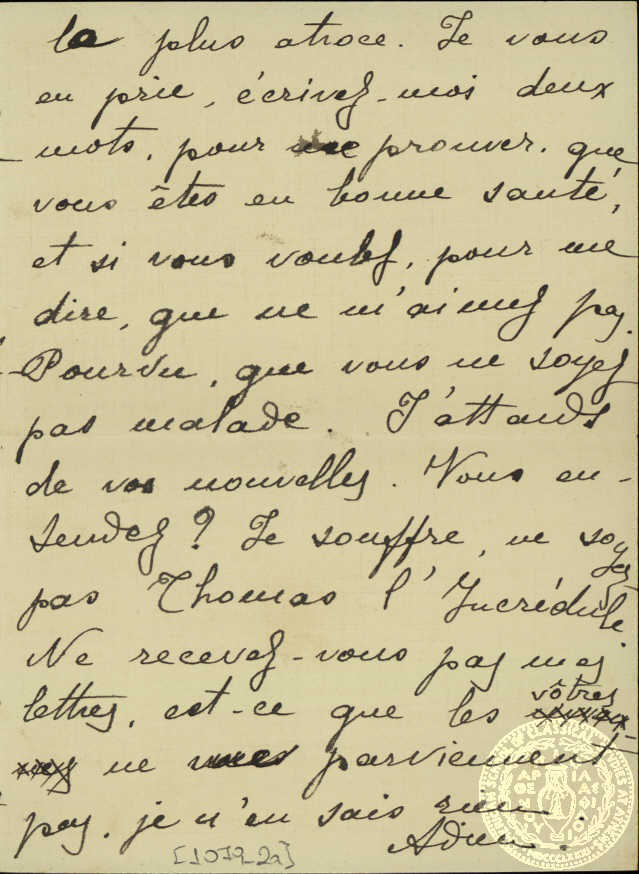 la plus atroce. Je vous
en prie, écrivez-moi deux
mots, pour me prouver, que
vous êtes en bonne santé,
et si vous voulez, pour me
dire, que ne m'aimez pas.
Pourvu, que vous ne soyez
pas malade. J'attands
de vos nouvelles. Vous en-
tendez? Je souffre, ne soyez
pas Thomas l'Incrédule
Ne recevez-vous pas mes
lettres, est-ce que les vôtres
ne me parviennent
pas, je n'en sais rien.
Adieu.
[1079-2a]